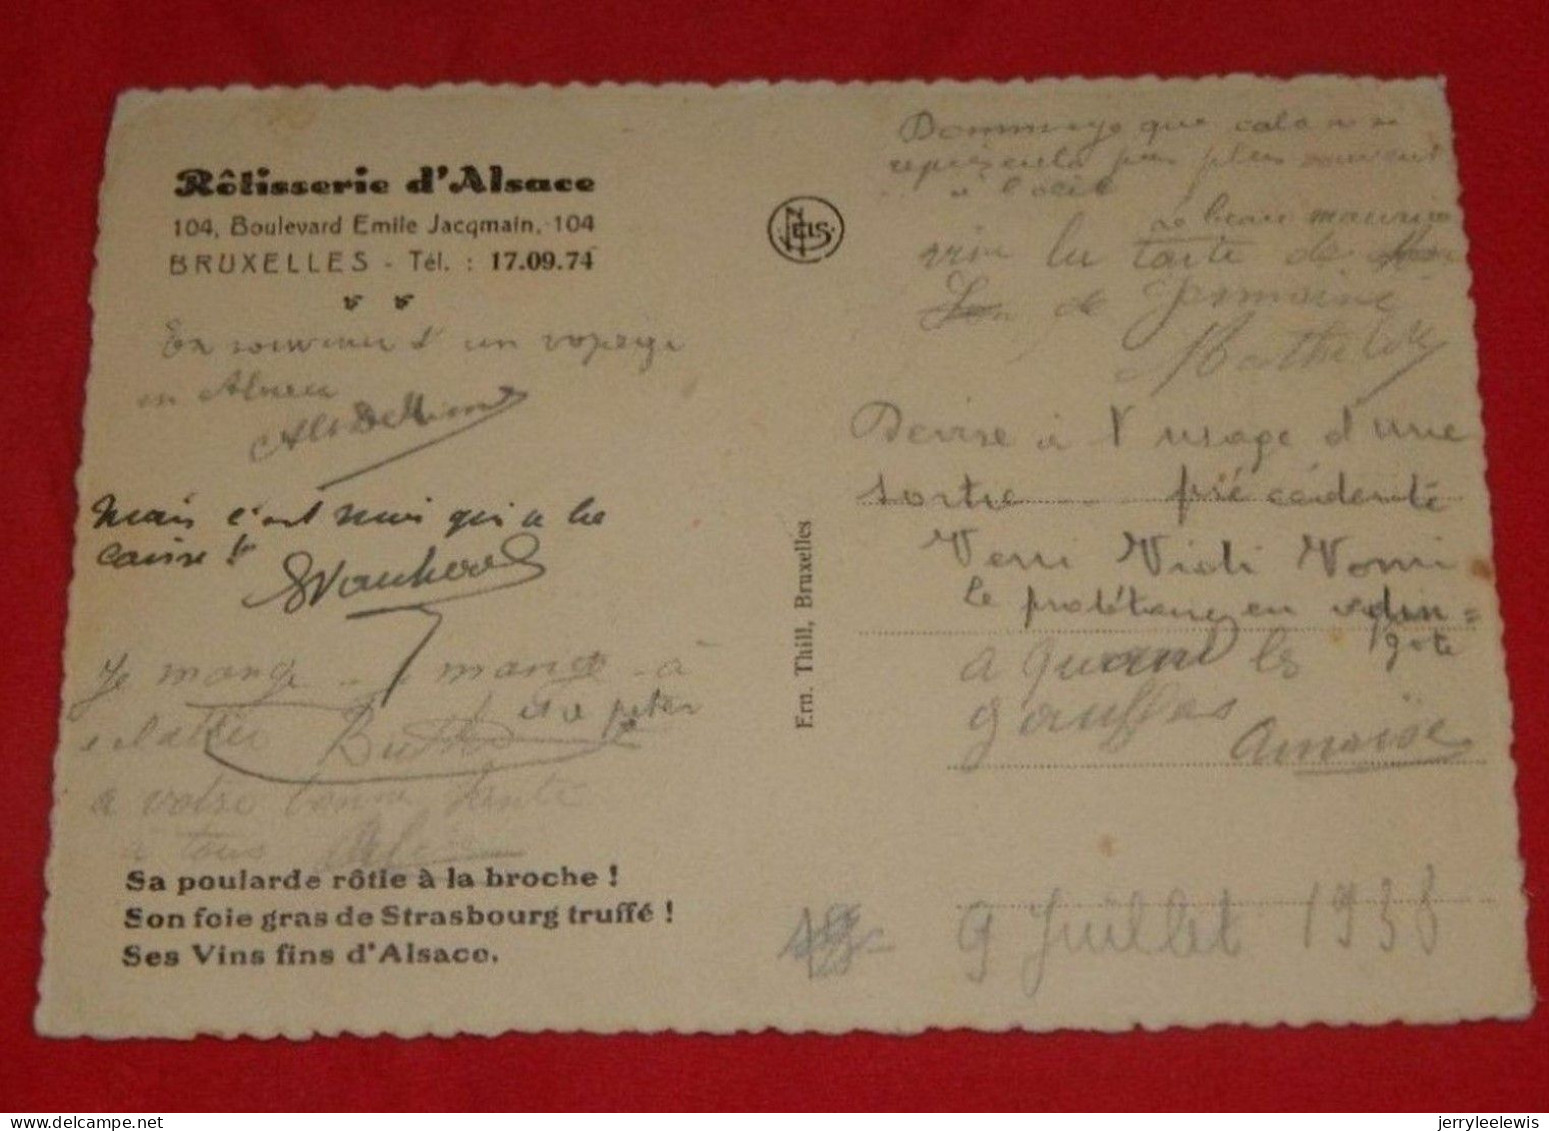 Rôtisserie d'Alsace
104, Boulevard Emile Jacqmain, 104
BRUXELLES - Tél. : 17.09.74
En souvenir d'un voyage
en Alsace
Mais c'est moi qui a la
caisse !
Je mange - je mange - à
éclatter
et à péter
à votre bonne santé
à tous
Sa poularde rôtie à la broche !
Son foie gras de Strasbourg truffé !
Ses Vins fins d'Alsace.
NELS
Ern. Thill, Bruxelles
Dommage que cela ne se
pas plus souvent
le beau maurice
vive la tarte de
de Germaine
Devise à l'usage d'une
sortie précédente
Veni Vidi Vomi
Le prolétaire en redin=
gote
a quand les
gauffres
9 Juillet 1938
jerryleelewis